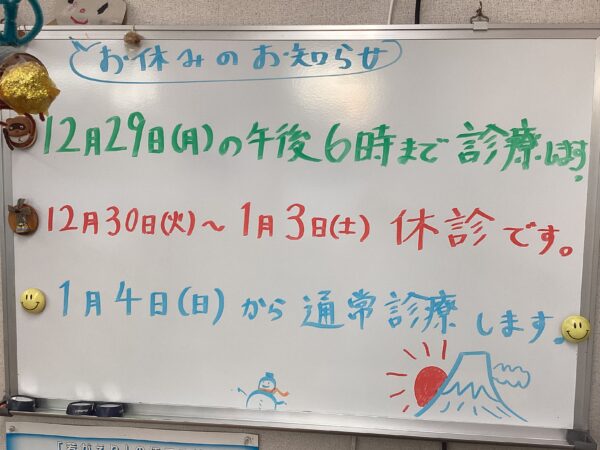 お休みのお知らせ
12月29日(月)の午後6時まで診療します!
12月30日(火)～1月3日(土) 休診です。
1月4日(日)から通常診療します♪